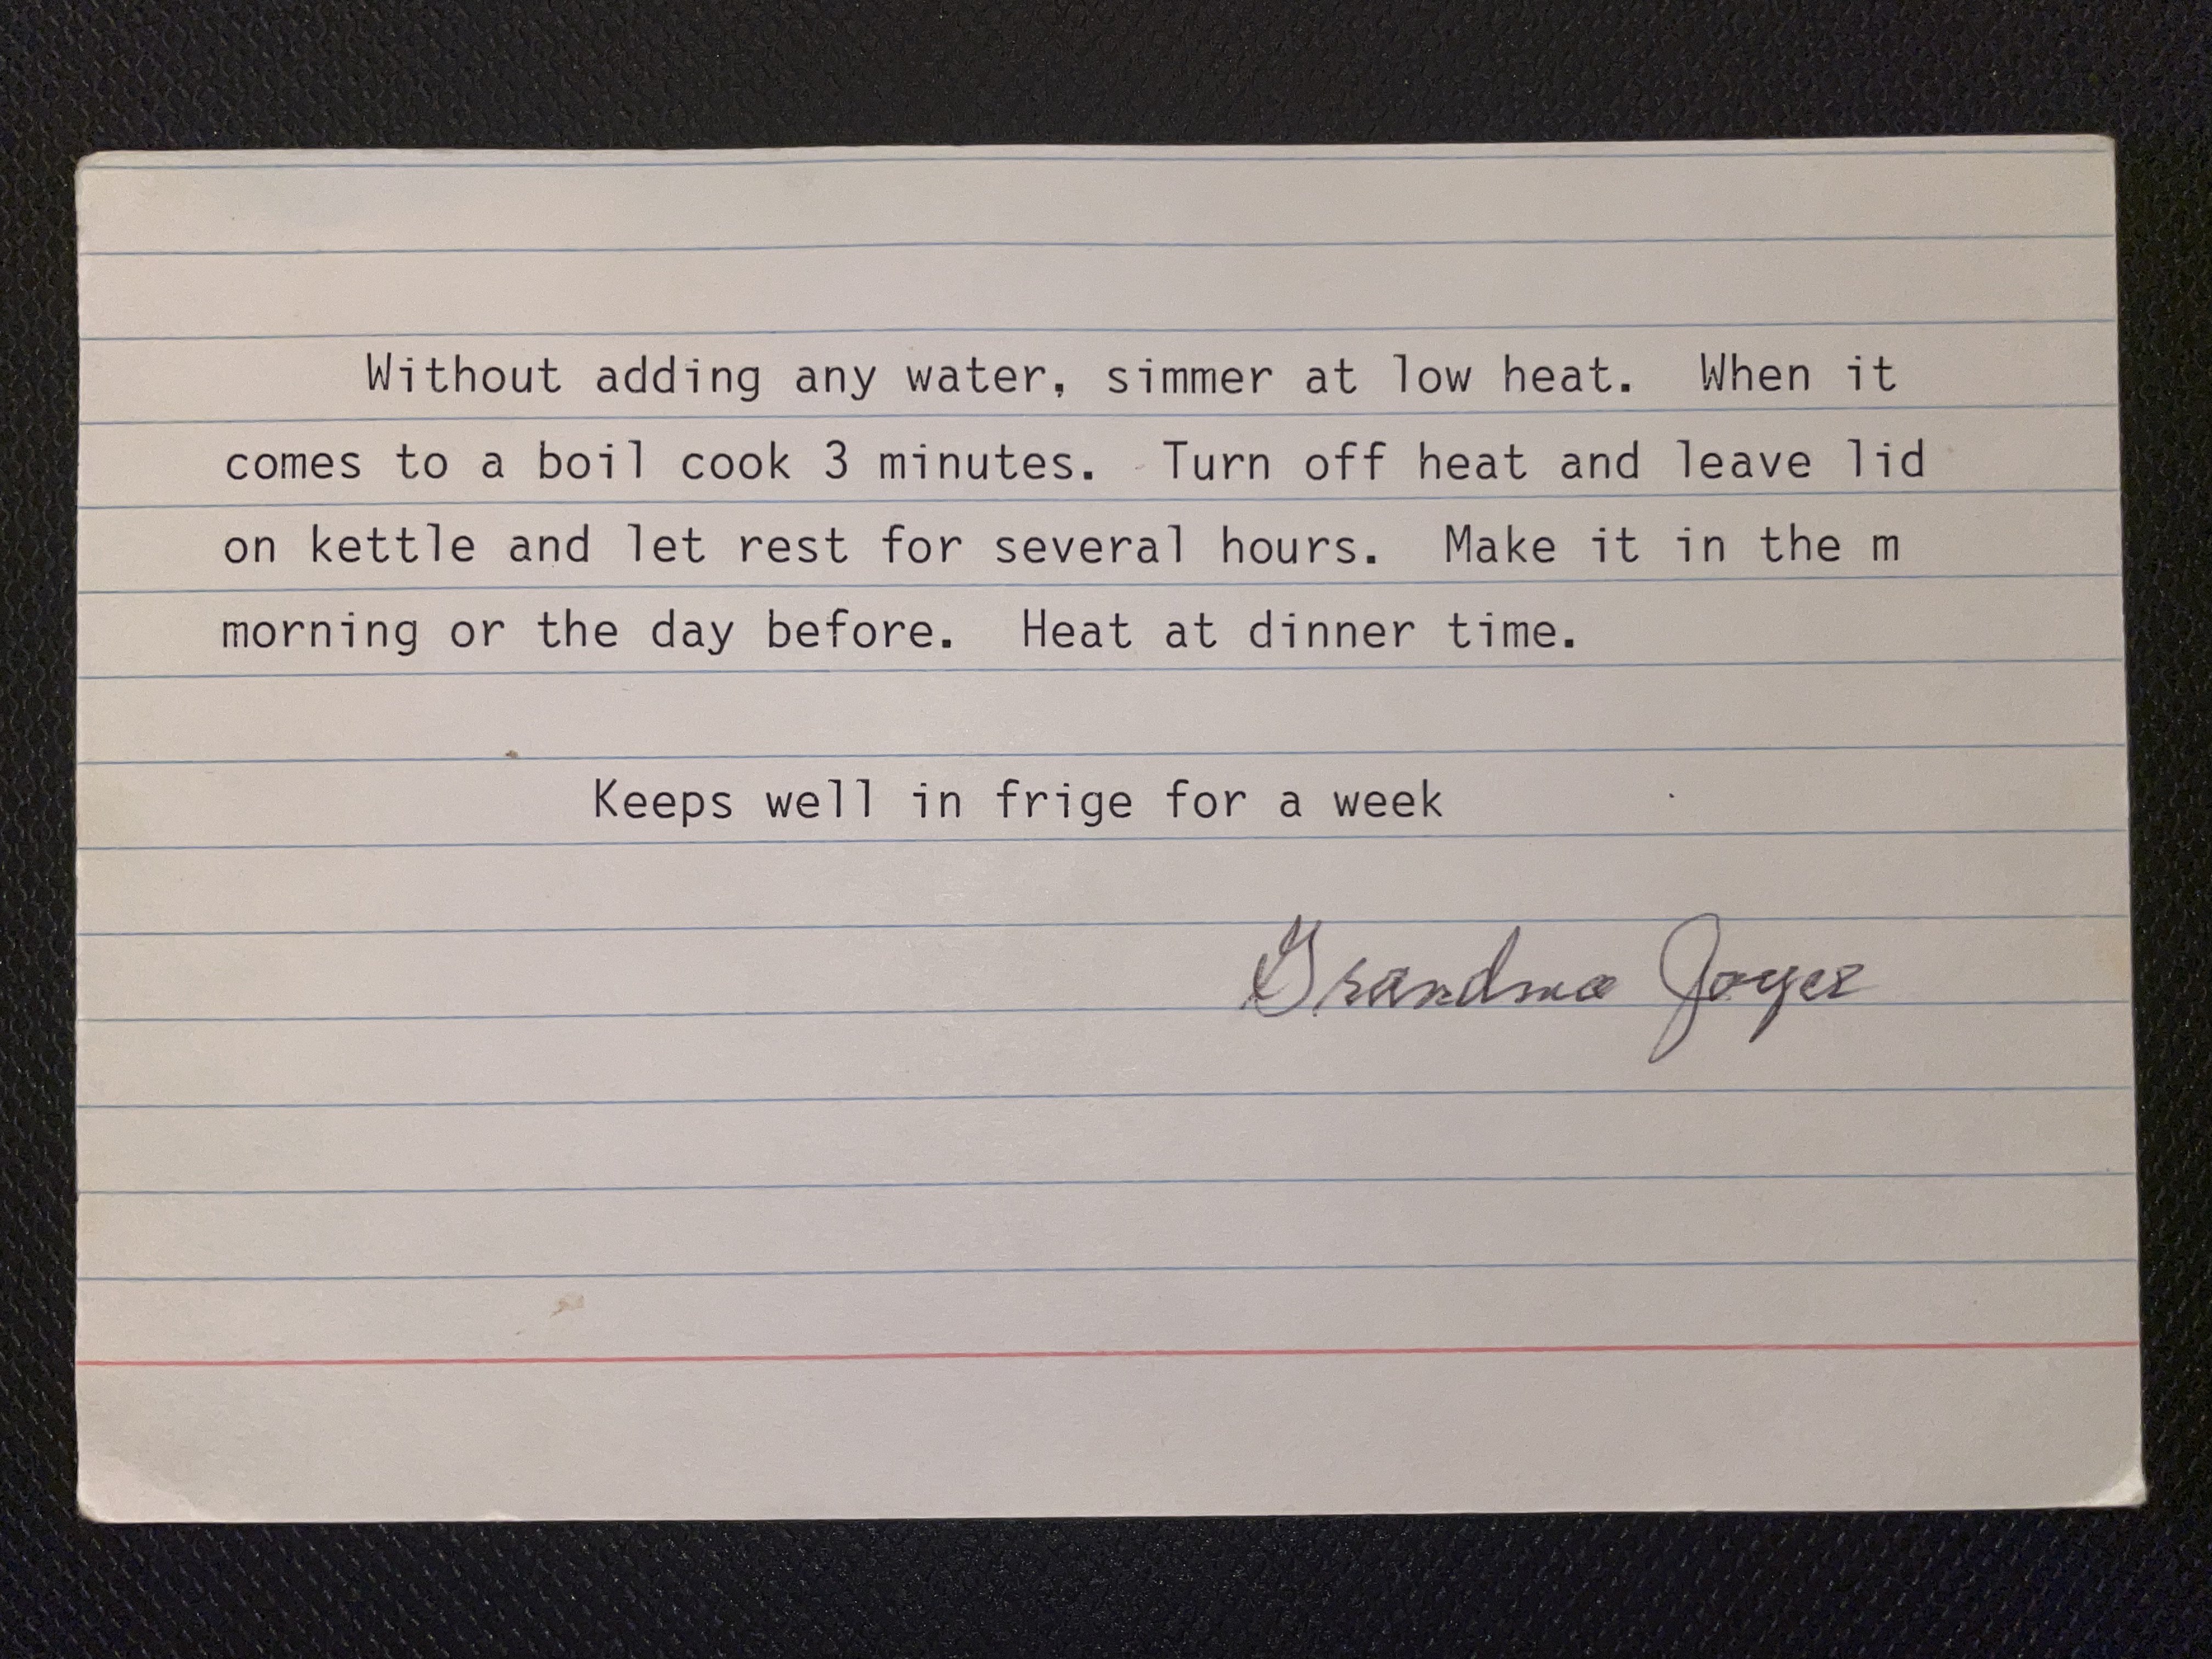 Without adding any water, simmer at low heat.  When it
comes to a boil cook 3 minutes.  Turn off heat and leave lid
on kettle and let rest for several hours.  Make it in the m
morning or the day before.  Heat at dinner time.
Keeps well in frige for a week
Grandma Joyce